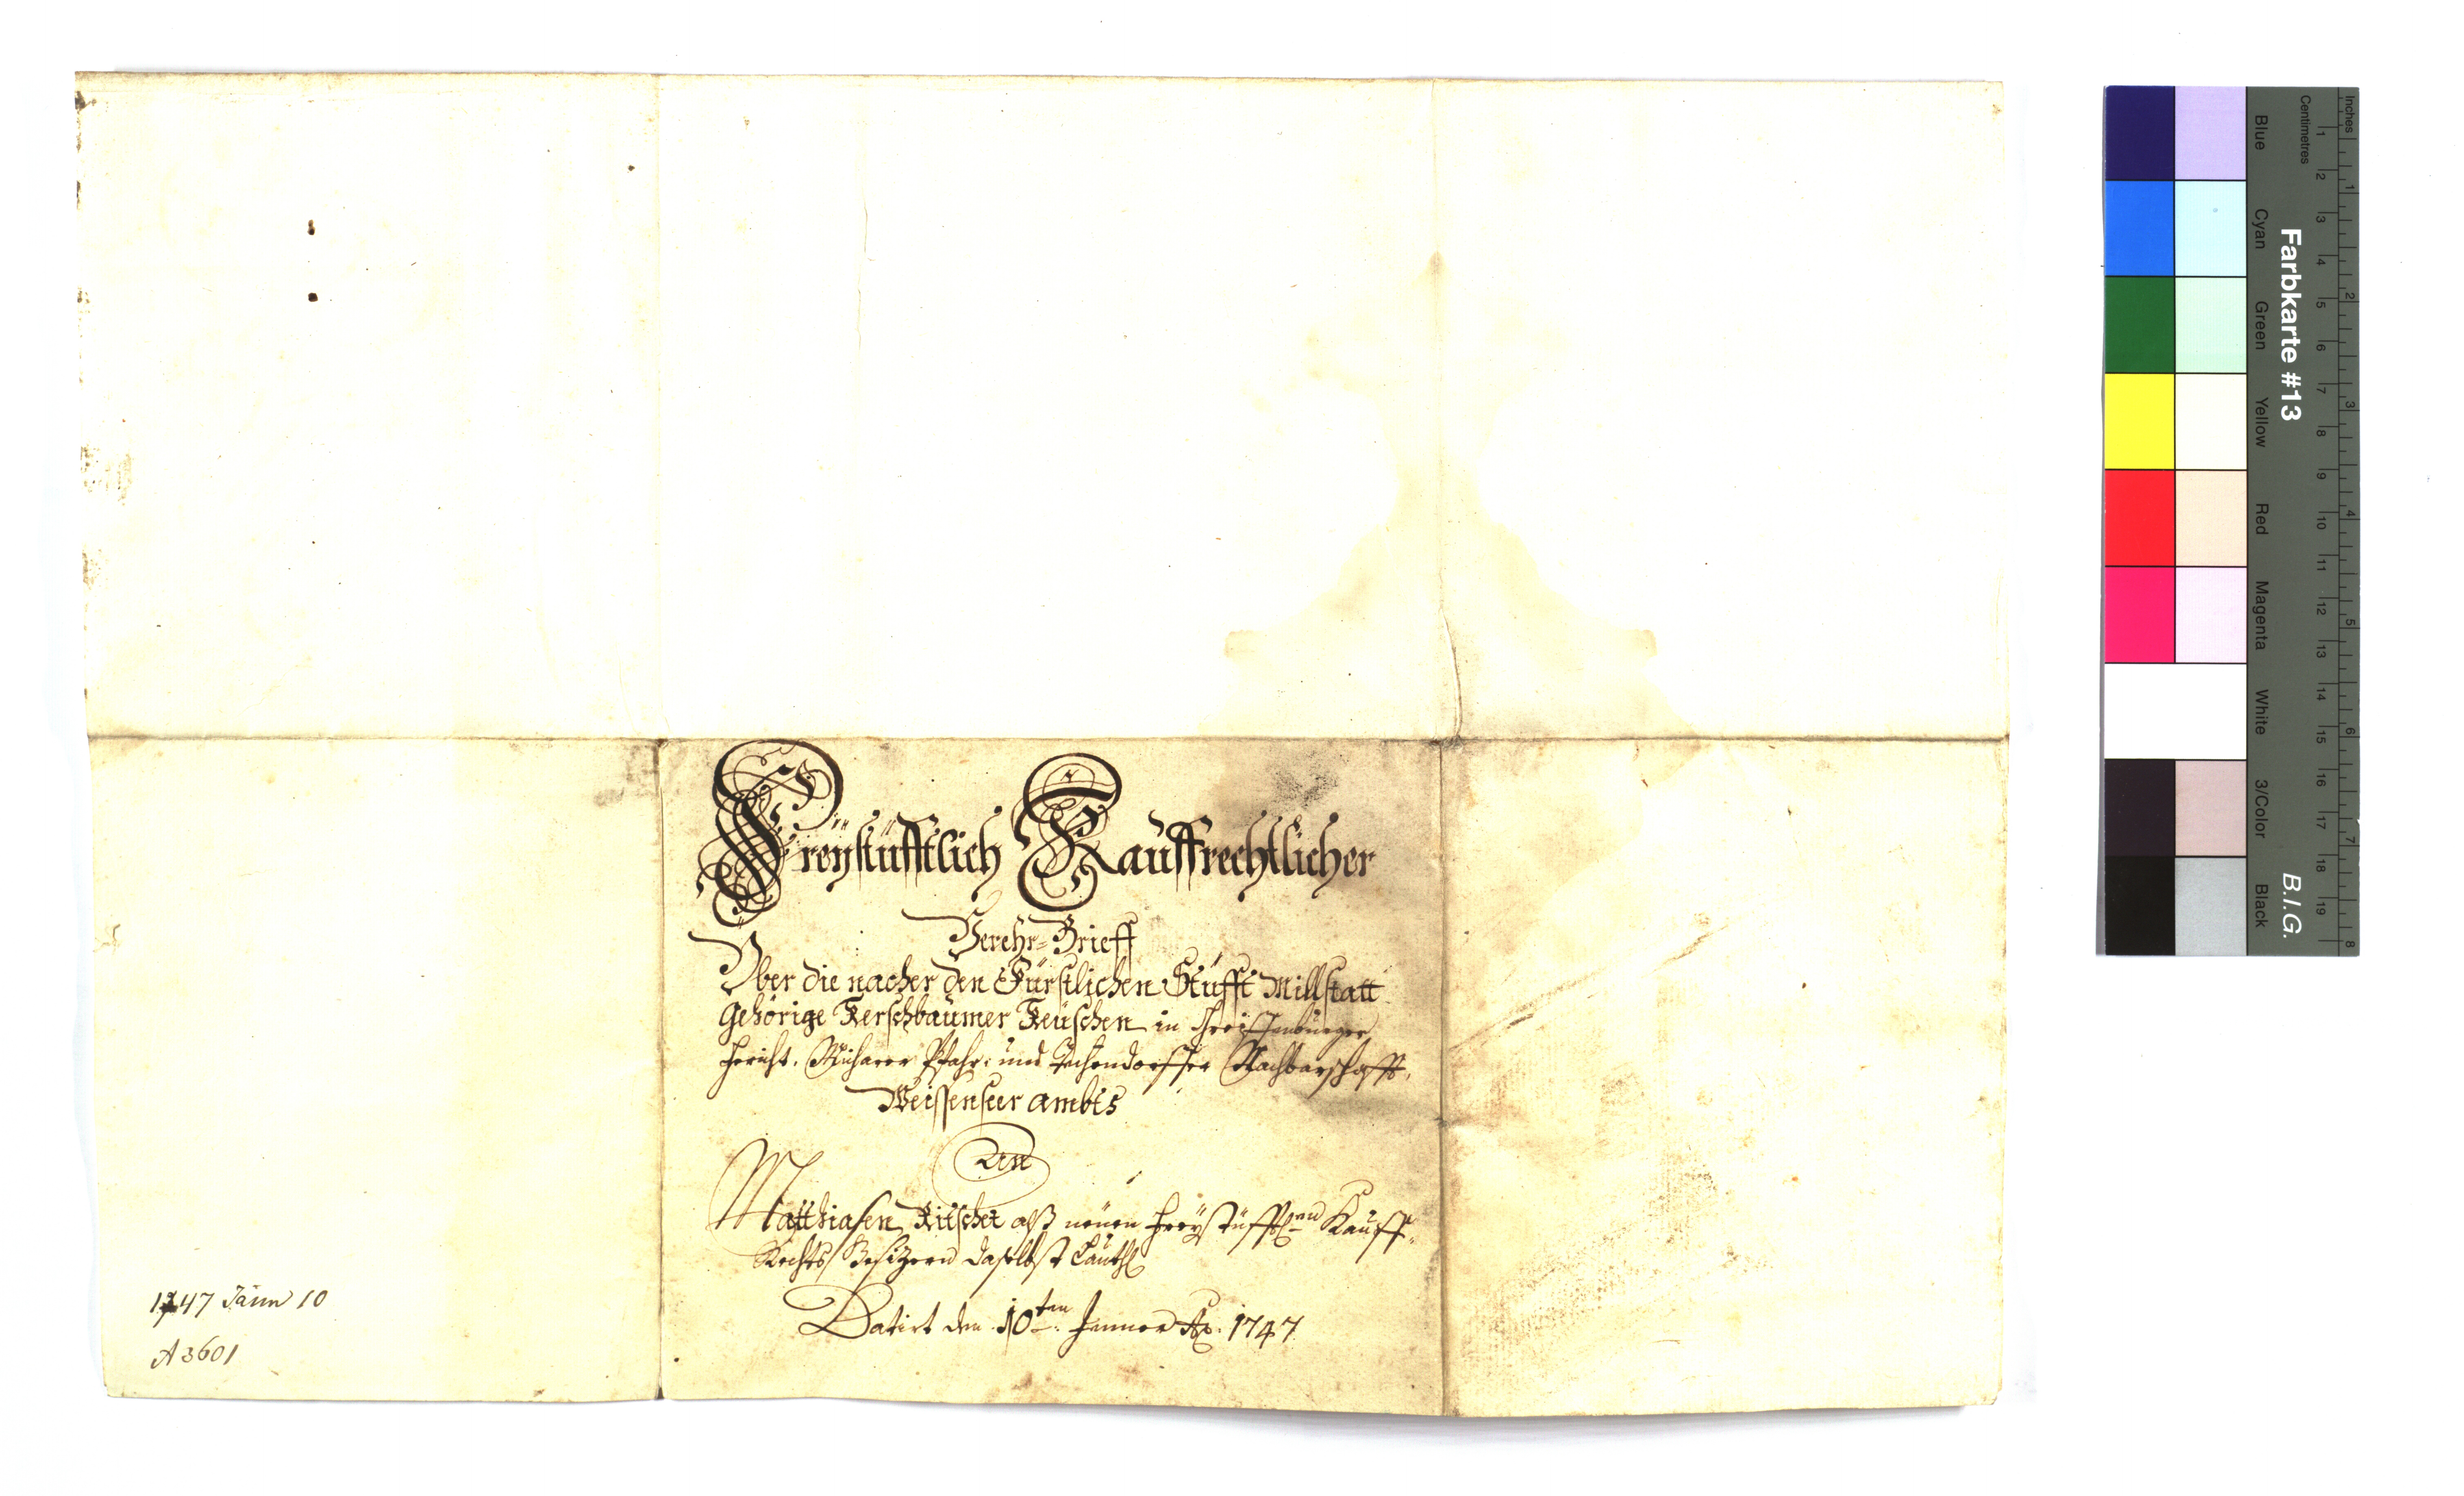 Freÿstüfftlich Kauffrechtlicher
Verehr-Brieff
Über die nacher den Fürstlichen Stüfft Millstatt
Gehörige Kerschbaumer Keüschen in Greiffenburger
Gericht, Pfahr: und Techendorffer Nachbarschafft,
Weissenseer ambts
Den
Matthiasen Kitscher alß neüen Freÿstüfft Kauff-
Rechts Besizern daselbst Lauth
Datirt den 10ten Jenner Ao. 1747
1747 Jänn 10
A 3601
Farbkarte #13
B.I.G.
Inches
Centimetres
1 2 3 4 5 6 7 8 9 10 11 12 13 14 15 16 17 18 19
1 2 3 4 5 6 7 8
Blue
Cyan
Green
Yellow
Red
Magenta
White
3/Color
Black